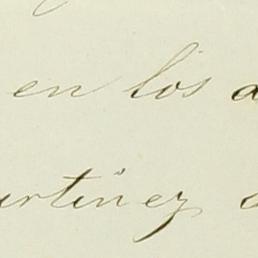 en los a
artinez